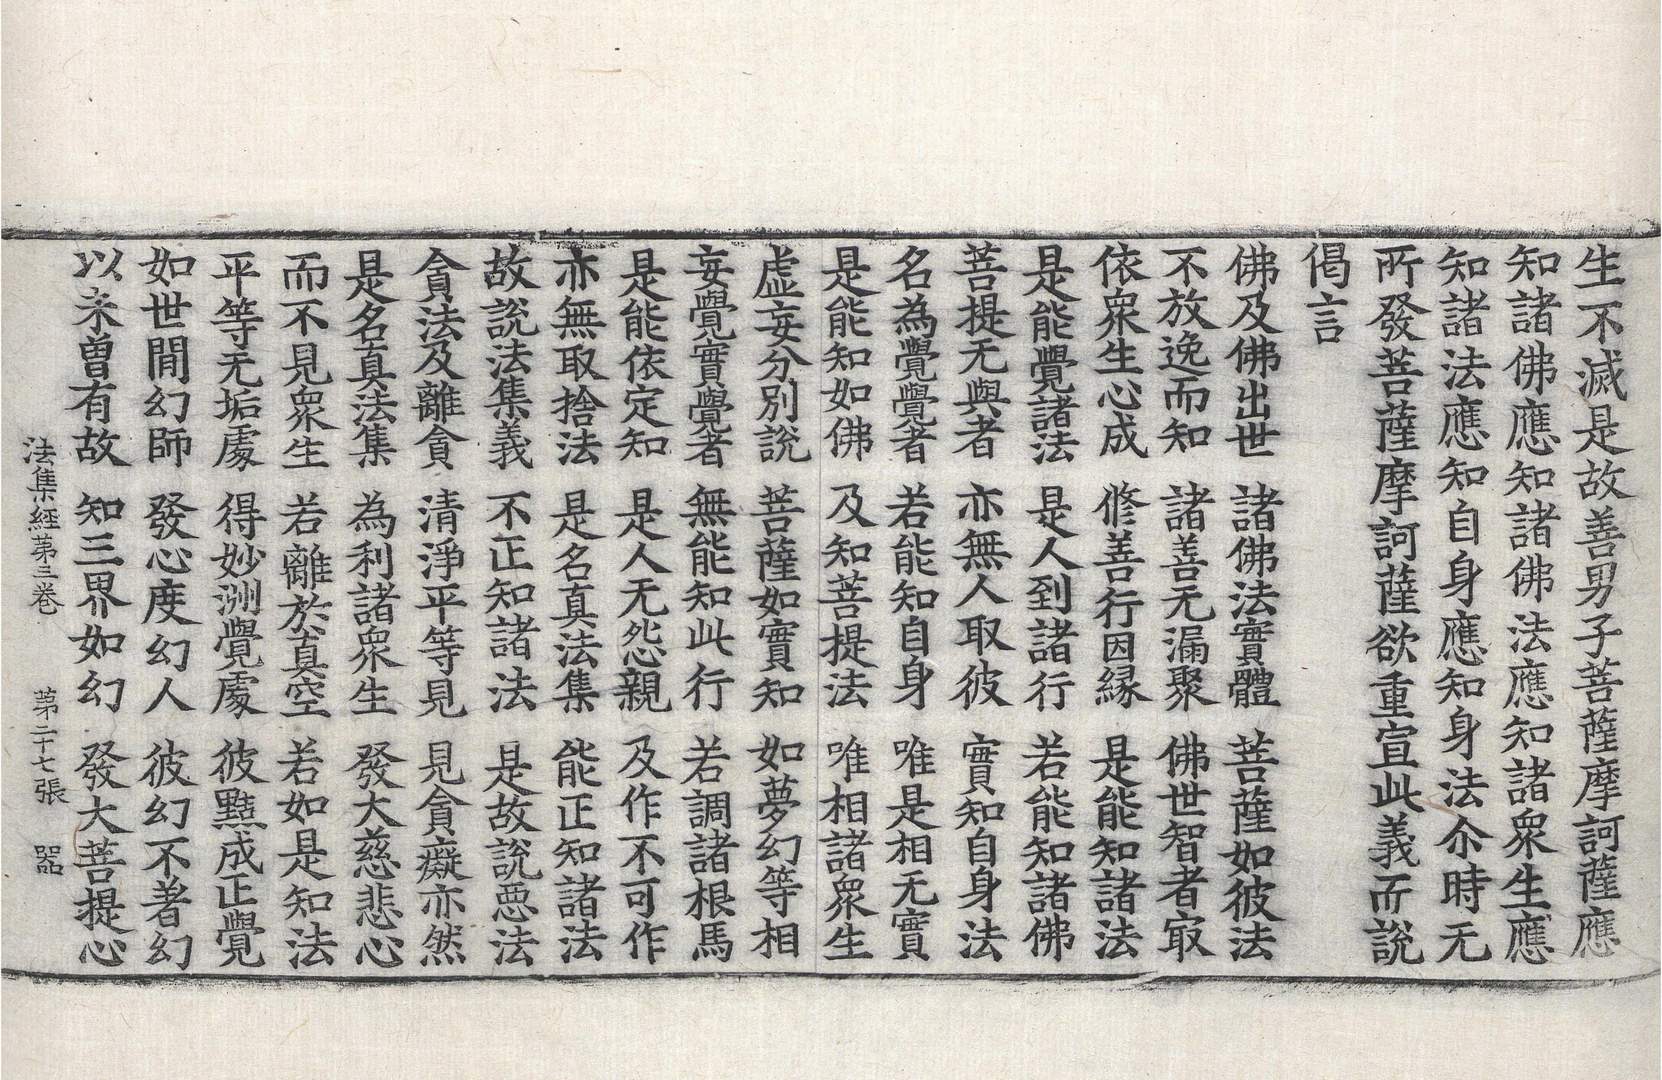 生不滅是故善男子菩薩摩訶薩應
知諸佛應知諸佛法應知諸衆生應
知諸法應知自身應知身法尒時无
所發菩薩摩訶薩欲重宣此義而說
偈言
佛及佛出世 諸佛法實體 菩薩如彼法
不放逸而知 諸善无漏聚 佛世智者㝡
依衆生心成 修善行因緣 是能知諸法
是能覺諸法 是人到諸行 若能知諸佛
菩提无與者 亦無人取彼 實知自身法
名為覺覺者 若能知自身 唯是相无實
是能知如佛 及知菩提法 唯相諸衆生
虛妄分別說 菩薩如實知 如夢幻等相
妄覺實覺者 無能知此行 若調諸根馬
是能依定知 是人无怨親 及作不可作
亦無取捨法 是名真法集 能正知諸法
故說法集義 不正知諸法 是故說惡法
貪法及離貪 清淨平等見 見貪癡亦然
是名真法集 為利諸衆生 發大慈悲心
而不見衆生 若離於真空 若如是知法
平等无垢處 得妙洲覺處 彼點成正覺
如世間幻師 發心度幻人 彼幻不著幻
以未曾有故 知三界如幻 發大菩提心
法集經第三卷 第二十七張 器